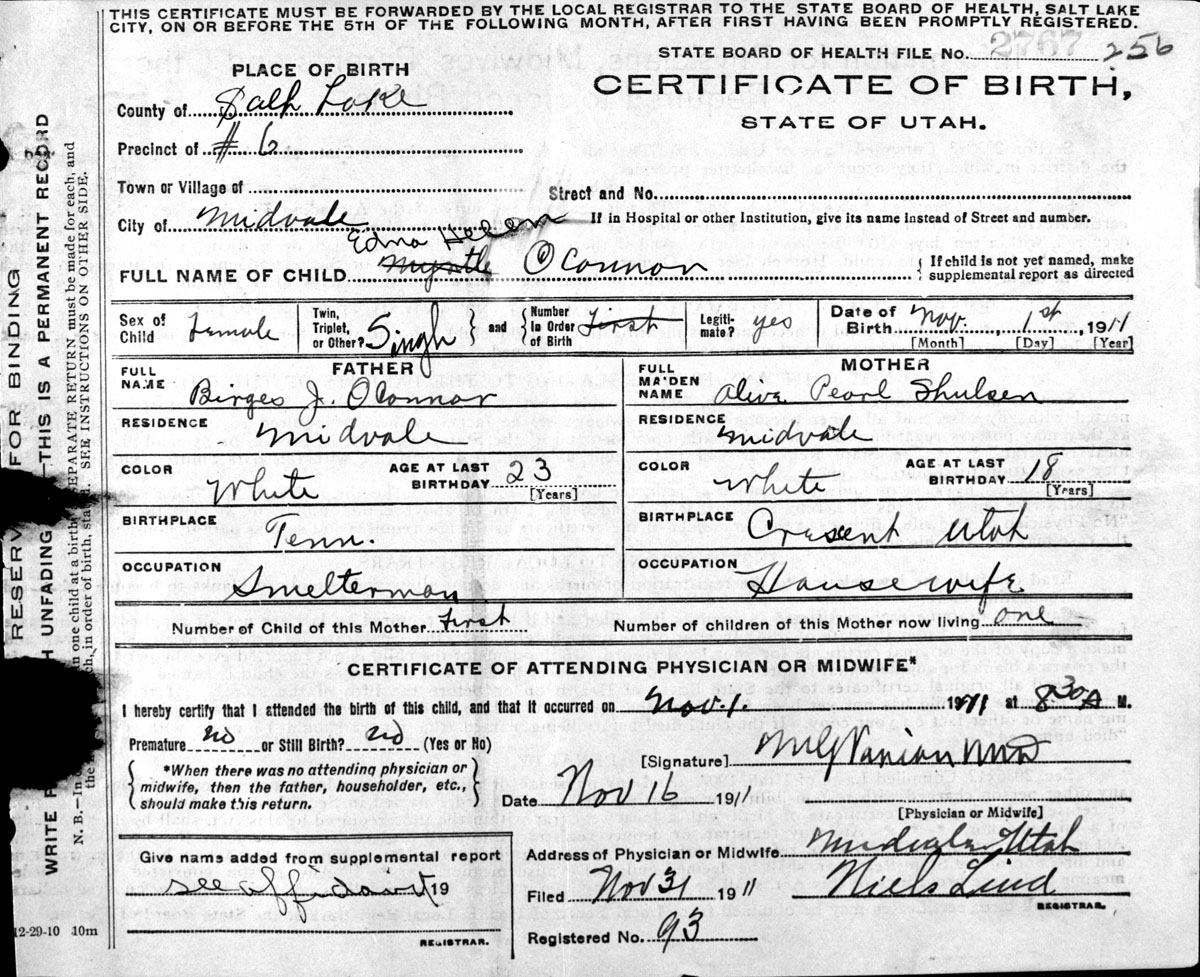 THIS CERTIFICATE MUST BE FORWARDED BY THE LOCAL REGISTRAR TO THE STATE BOARD OF HEALTH, SALT LAKE
CITY, ON OR BEFORE THE 5TH OF THE FOLLOWING MONTH, AFTER FIRST HAVING BEEN PROMPTLY REGISTERED.
STATE BOARD OF HEALTH FILE No. 2767 256
PLACE OF BIRTH
CERTIFICATE OF BIRTH,
STATE OF UTAH.
County of Salt Lake
Precinct of # 6
Town or Village of
Street and No.
City of Midvale
If in Hospital or other Institution, give its name instead of Street and number.
Edna Helena
FULL NAME OF CHILD Myrtle OConnor
If child is not yet named, make
supplemental report as directed
Sex of Child Female
Twin, Triplet, or Other? Singl
and Number in Order of Birth First
Legiti-mate? yes
Date of Birth Nov. 1st, 1911
[Month] [Day] [Year]
FATHER
FULL NAME Birges J. OConnor
RESIDENCE Midvale
COLOR White
AGE AT LAST BIRTHDAY 23
[Years]
BIRTHPLACE Tenn.
OCCUPATION Smelterman
MOTHER
FULL MAIDEN NAME Pearl Shulsen
RESIDENCE Midvale
COLOR White
AGE AT LAST BIRTHDAY 18
[Years]
BIRTHPLACE Cresent Utah
OCCUPATION House wife
Number of Child of this Mother First
Number of children of this Mother now living one
CERTIFICATE OF ATTENDING PHYSICIAN OR MIDWIFE*
I hereby certify that I attended the birth of this child, and that it occurred on Nov. 1. 1911 at 8.30 A M.
Premature no or Still Birth? no (Yes or No)
*When there was no attending physician or
midwife, then the father, householder, etc.,
should make this return.
[Signature]
Date Nov 16 1911
[Physician or Midwife]
Give name added from supplemental report
see affidavit 19
REGISTRAR.
Address of Physician or Midwife Midvale Utah
Filed Nov 31 1911 Niels Lind
REGISTRAR.
Registered No. 93
12-29-10 10m
RESERV FOR BINDING
WRITE H UNFADING THIS IS A PERMANENT RECORD
N. B.—In one child at a birth SEPARATE RETURN must be made for each, and
in order of birth, stated. SEE INSTRUCTIONS ON OTHER SIDE.